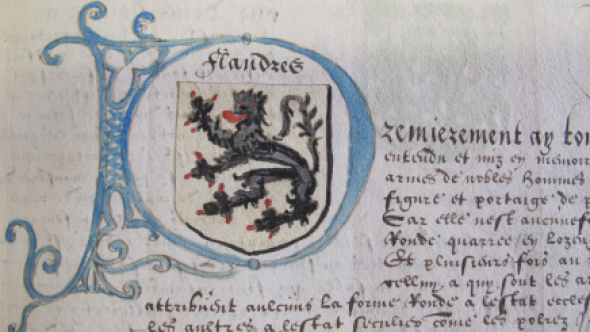 flandres
Premierement ay
entendu et mis en memoir
armes de nobles hommes
figure et portaige de p
Car elle nest aucunef
Ronde quarree en lozen
Et pluisieurs fois au
celluy a qui sont les ar
attribuent aulcuns la forme Ronde a lestat eccles
les aultres a lestat seculier come les poblez